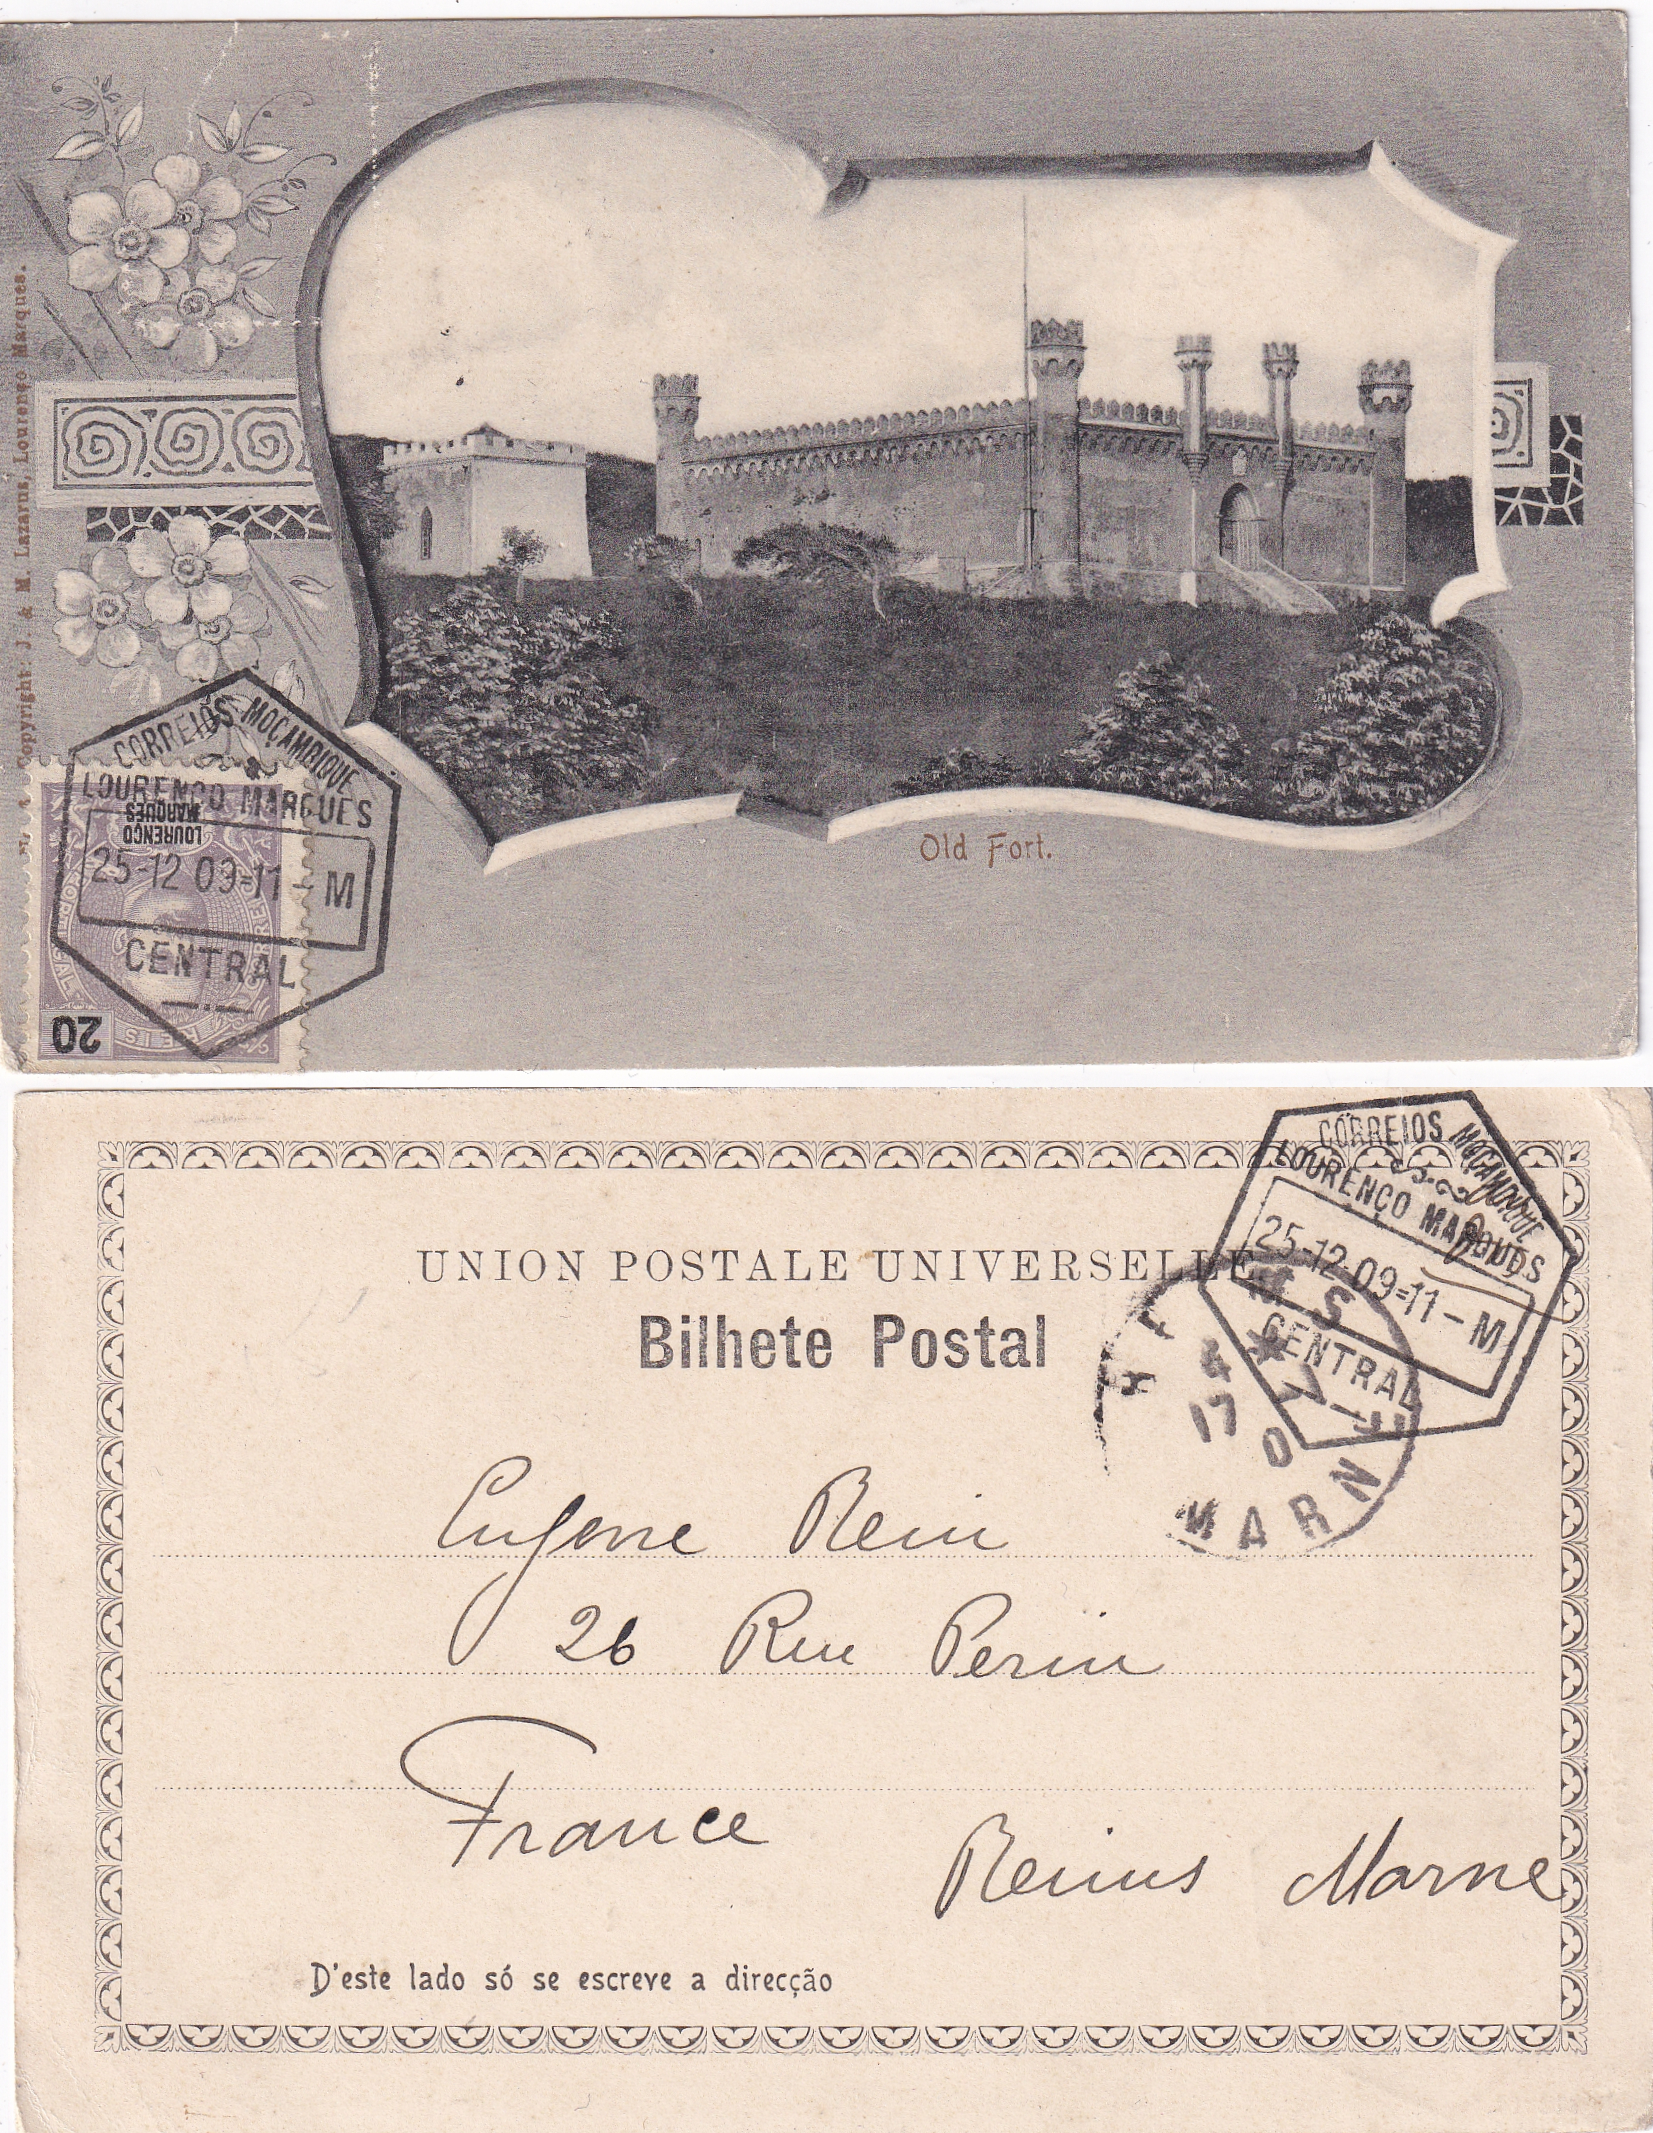 Copyright: J. & M. Lazarus, Lourenço Marques.
Old Fort.
CORREIOS MOÇAMBIQUE
LOURENÇO MARQUES
25-12 09=11-M
CENTRAL
LOURENÇO
MARQUES
PORTUGAL CORREIO
REIS
20
CORREIOS MOÇAMBIQUE
LOURENÇO MARQUES
25-12 09=11-M
CENTRAL
UNION POSTALE UNIVERSELLE
Bilhete Postal
MS
4
17
MARN
Eugene Rein
26 Rue Perin
France
Reims Marne
D'este lado só se escreve a direcção